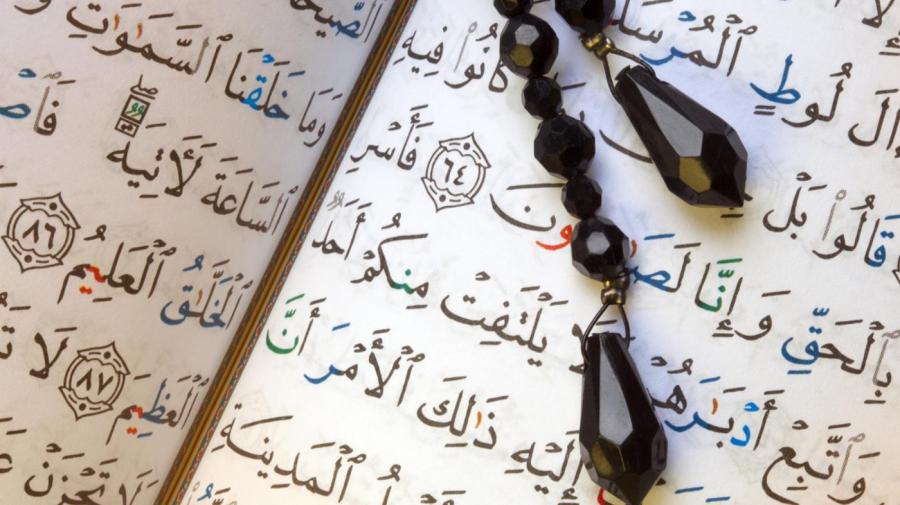 لُوطٍ ٱلْمُرْسَلُ
قَالُوا۟ بَلْ كَانُوا۟ فِيهِ
بِٱلْحَقِّ وَإِنَّا لَصَـٰدِقُونَ ٦٤ فَأَسْرِ
وَٱتَّبِعْ أَدْبَـٰرَهُمْ وَلَا يَلْتَفِتْ مِنكُمْ أَحَدٌ
إِلَيْهِ ذَٰلِكَ ٱلْأَمْرَ أَنَّ
ٱلْمَدِينَةِ
وَمَا خَلَقْنَا ٱلسَّمَـٰوَٰتِ
ٱلسَّاعَةَ لَـَٔاتِيَةٌ
ٱلْخَلَّـٰقُ ٱلْعَلِيمُ ٨٦
ٱلْعَظِيمَ ٨٧ لَا
وَلَا تَحْزَنْ